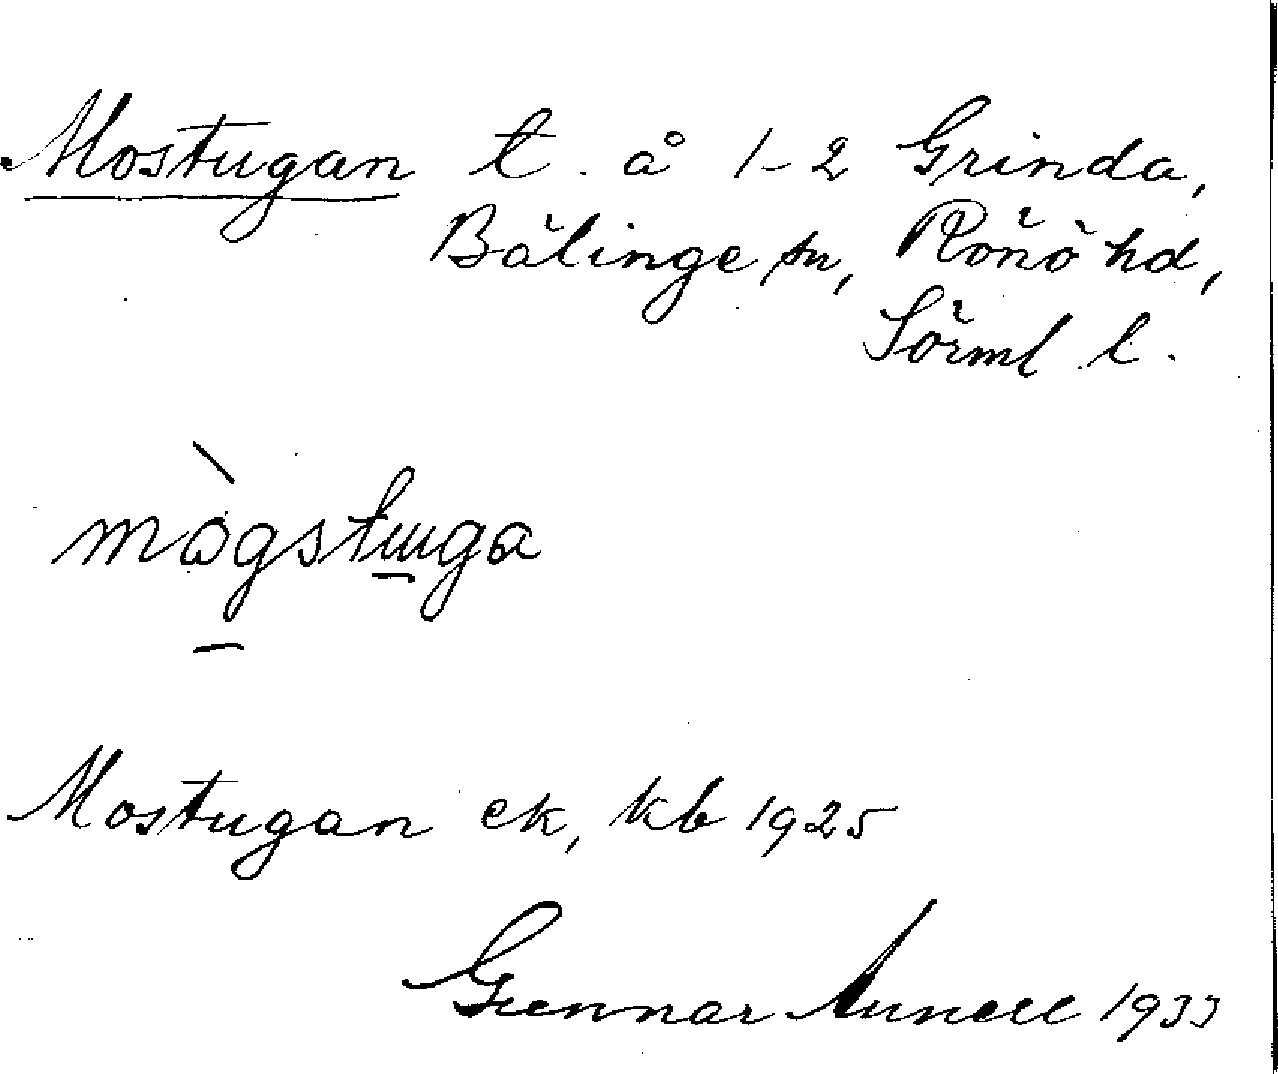 Mostugan t. å 1-2 Grinda,
Bälinge sn, Rönö hd,
Sörml l.
mògstuga
Mostugan ek, kb 1925
Gunnar Aunell 1933